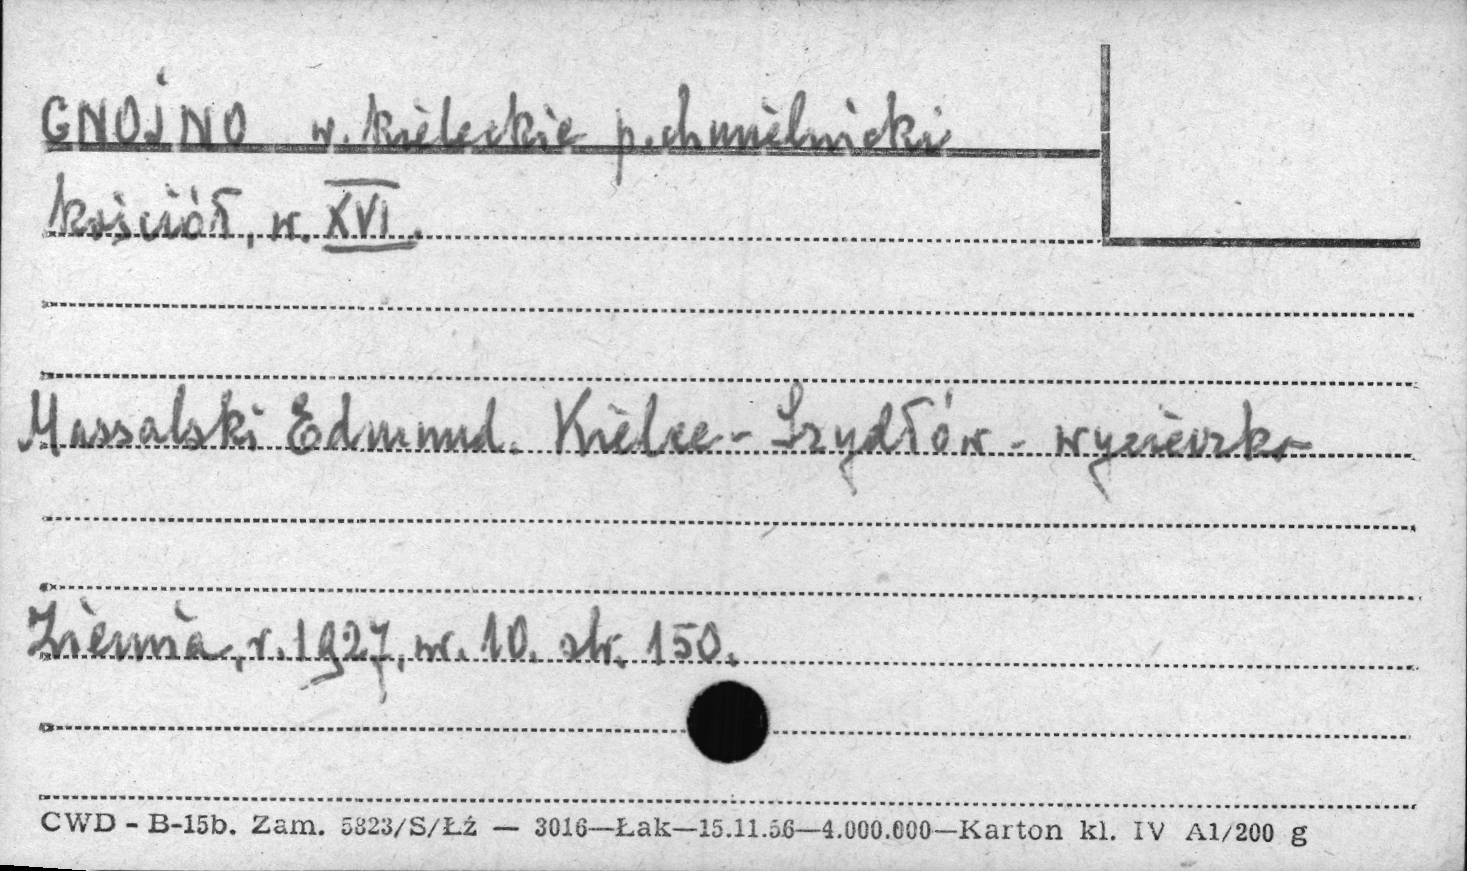 GNOJNO w. kieleckie p. chmielnicki
kościół, w. XVI.
Massalski Edmund. Kielce - Szydłów - wycieczka
Ziemia, r. 1927, nr. 10. str. 150.
CWD - B-15b. Zam. 5823/S/Łź — 3016—Łak—15.11.56—4.000.000—Karton kl. IV A1/200 g